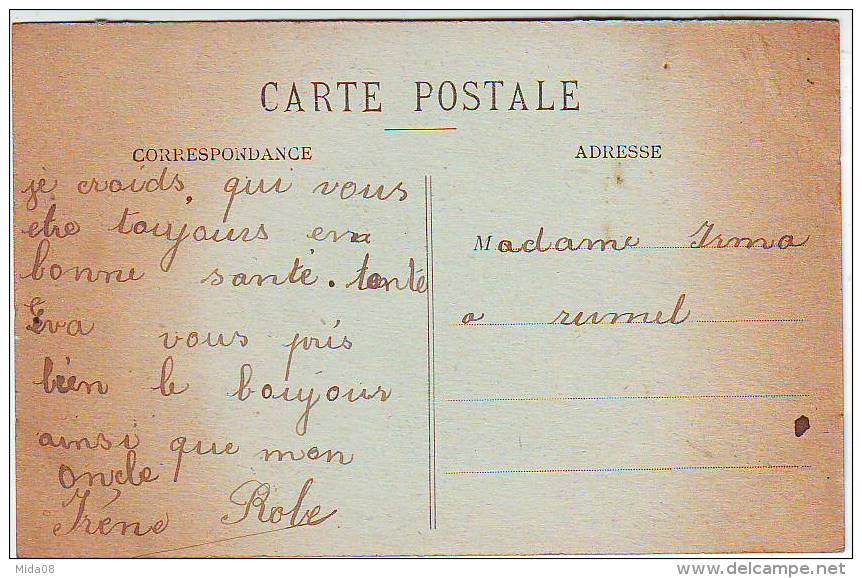 CARTE POSTALE
CORRESPONDANCE
je croids qui vous
etre toujours en
bonne santé. tenté
Eva vous pris
bien le boujour
ainsi que mon
oncle
Irène Robe
ADRESSE
Madame Irma
a rumel
Mida08
www.delcampe.net